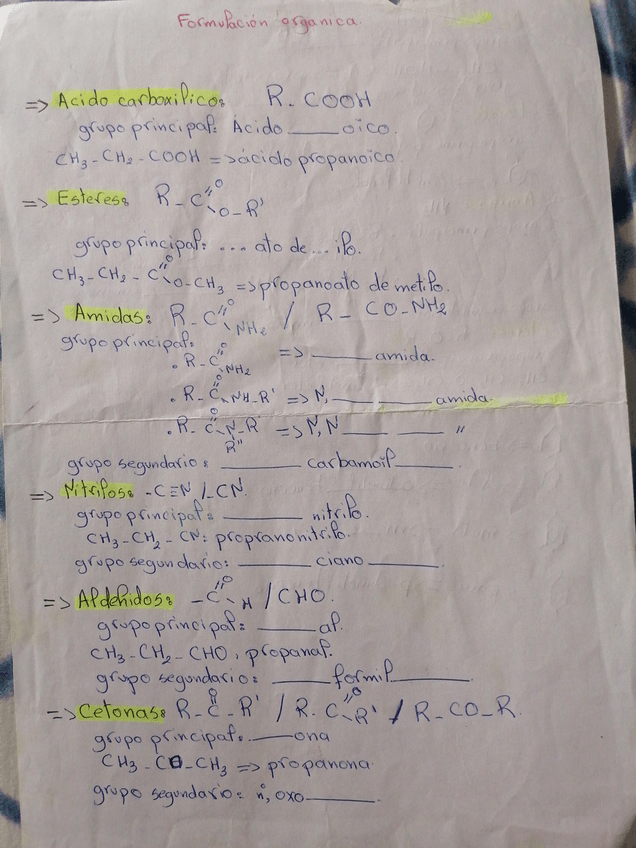 Formulación organica.
=> Acido carboxilico: R - COOH
grupo principal: Acido ____ oico.
CH3 - CH2 - COOH => ácido propanoico
=> Esteres: R - C(=O) - O - R'
grupo principal: ... ato de ... ilo.
CH3 - CH2 - C(=O) - O - CH3 => propanoato de metilo.
=> Amidas: R - C(=O) - NH2 / R - CO - NH2
grupo principal:
. R - C(=O) - NH2 => ____ amida.
. R - C(=O) - NH - R' => N, ____ amida.
. R - C(=O) - N(R'') - R' => N, N ____ ____ "
grupo segundario: ____ carbamoil ____.
=> Nitrilos: -C≡N / -CN.
grupo principal: ____ nitrilo.
CH3 - CH2 - CN: propranonitrilo.
grupo segundario: ____ ciano ____.
=> Aldehidos: - C(=O) - H / CHO.
grupo principal: ____ al.
CH3 - CH2 - CHO, propanal.
grupo segundario: ____ formil ____.
=> Cetonas: R - C(=O) - R' / R - C(=O) - R' / R - CO - R.
grupo principal: ____ ona
CH3 - CO - CH3 => propanona
grupo segundario: nº, oxo ____.